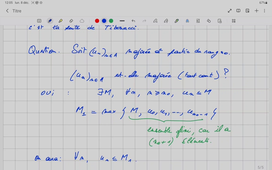 c'est la suite de Fibonacci.
Question: Soit (uₙ)ₙ∈ℕ majorée à partir du rang n₀.
(uₙ)ₙ∈ℕ est-elle majorée (tout court) ?
oui : ∃M, ∀n, n≥n₀, uₙ ≤ M
M₂ = max { M, u₀, u₁, ..., u_{n₀-1} }
ensemble fini, car il a
(n₀+1) éléments.
On aura: ∀n, uₙ ≤ M₂.